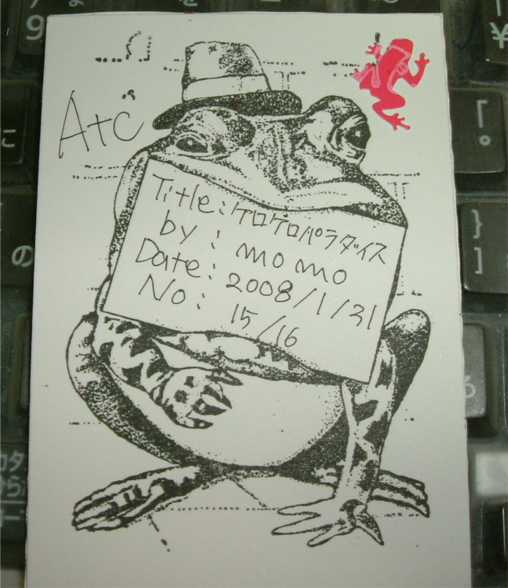 Atc
Title:ケロケロパラダイス
by: momo
Date: 2008/1/31
No: 15/16
9
¥
「
。
}
]
に
の
カタ